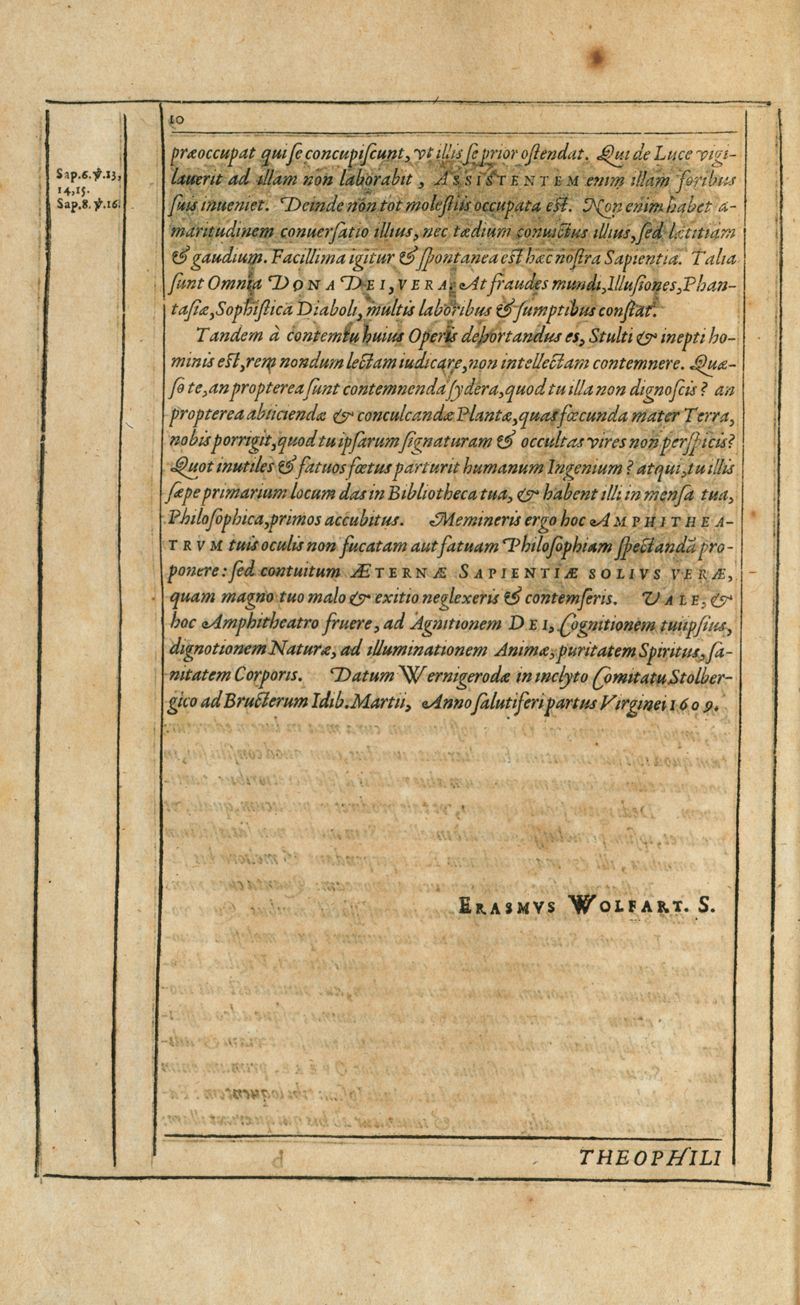 10
Sap.6.ꝟ.13,
14,15.
Sap.8.ꝟ.16.
præoccupat qui se concupiscunt, vt illis se prior ostendat. Qui de Luce vigi-
lauerit ad illam non laborabit, ASSISTENTEM enim illam foribus
suis inueniet. Deinde non tot molestiis occupata est. Non enim habet a-
maritudinem conuersatio illius, nec tædium conuictus illius, sed lætitiam
& gaudium. Facillima igitur & spontanea est hæc nostra Sapientia. Talia
sunt Omnia DONA DEI, VERA. At fraudes mundi, Illusiones, Phan-
tasiæ, Sophisticā Diaboli, multis laboribus & sumptibus constāt.
Tandem à contemtu huius Operis dehortandus es, Stulti & inepti ho-
minis est, rem nondum lectam iudicare, non intellectam contemnere. Quæ-
so te, an propterea sunt contemnenda sydera, quod tu illa non dignoscis? an
propterea abiicienda & conculcandæ Plantæ, quas fœcunda mater Terra,
nobis porrigit, quod tu ipsarum signaturam & occultas vires non perspicis?
Quot inutiles & fatuos fœtus parturit humanum Ingenium? atqui, tu illis
sæpe primarium locum das in Bibliotheca tua, & habent illi in mensa tua,
Philosophica, primos accubitus. Memineris ergo hoc AMPHITHEA-
TRVM tuis oculis non fucatam aut fatuam Philosophiam spectandā pro-
ponere: sed contuitum ÆTERNÆ SAPIENTIÆ SOLIVS VERÆ,
quam magno tuo malo & exitio neglexeris & contemseris. VALE, &
hoc Amphitheatro fruere, ad Agnitionem DEI, Cognitionem tuiipsius,
dignotionem Naturæ, ad illuminationem Animæ, puritatem Spiritus, sa-
nitatem Corporis. Datum Wernigerodæ in inclyto Comitatu Stolber-
gico ad Bructerum Idib. Martii, Anno salutiferi partus Virginei 1609.
ERASMVS WOLFART. S.
THEOPHILI